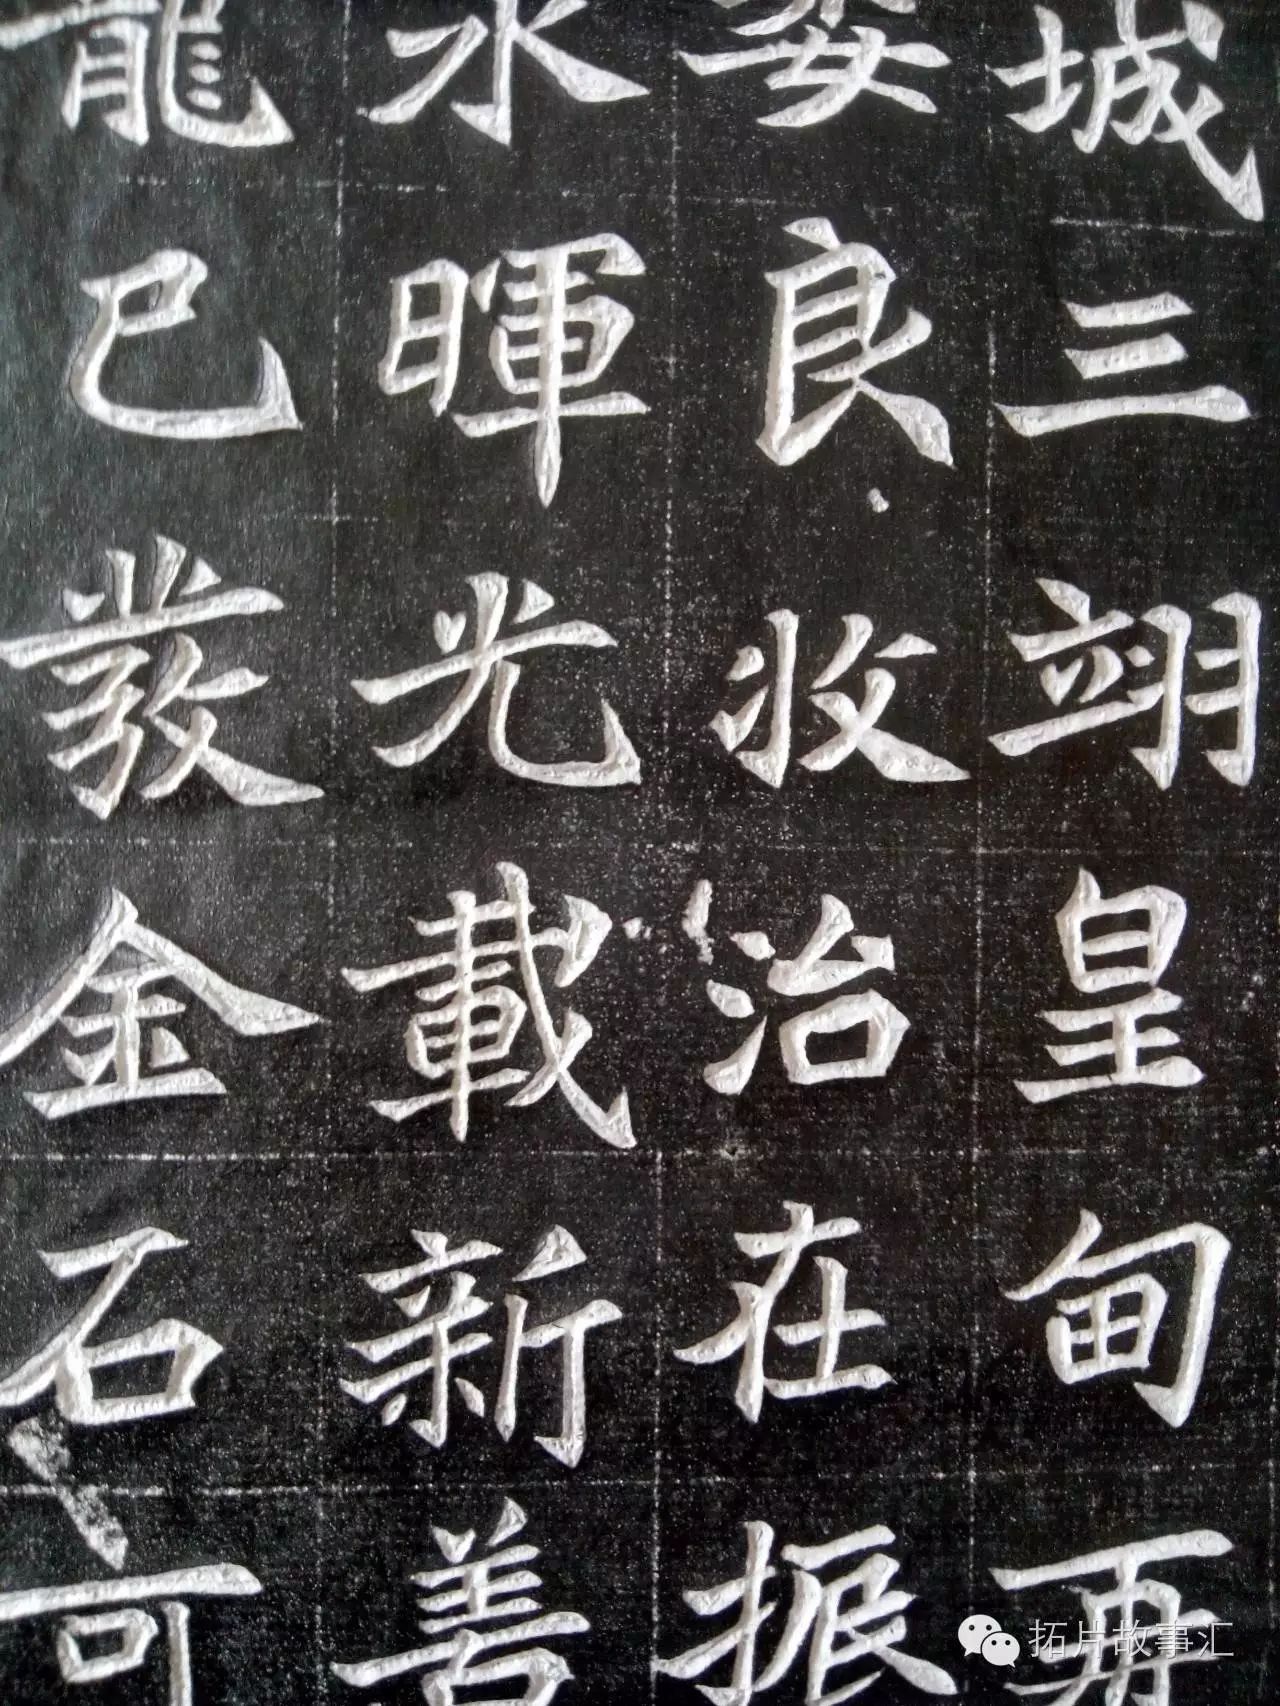 城三翊皇甸再
婁良收治在振
水暉光載新善
龍已發金石可
拓片故事汇